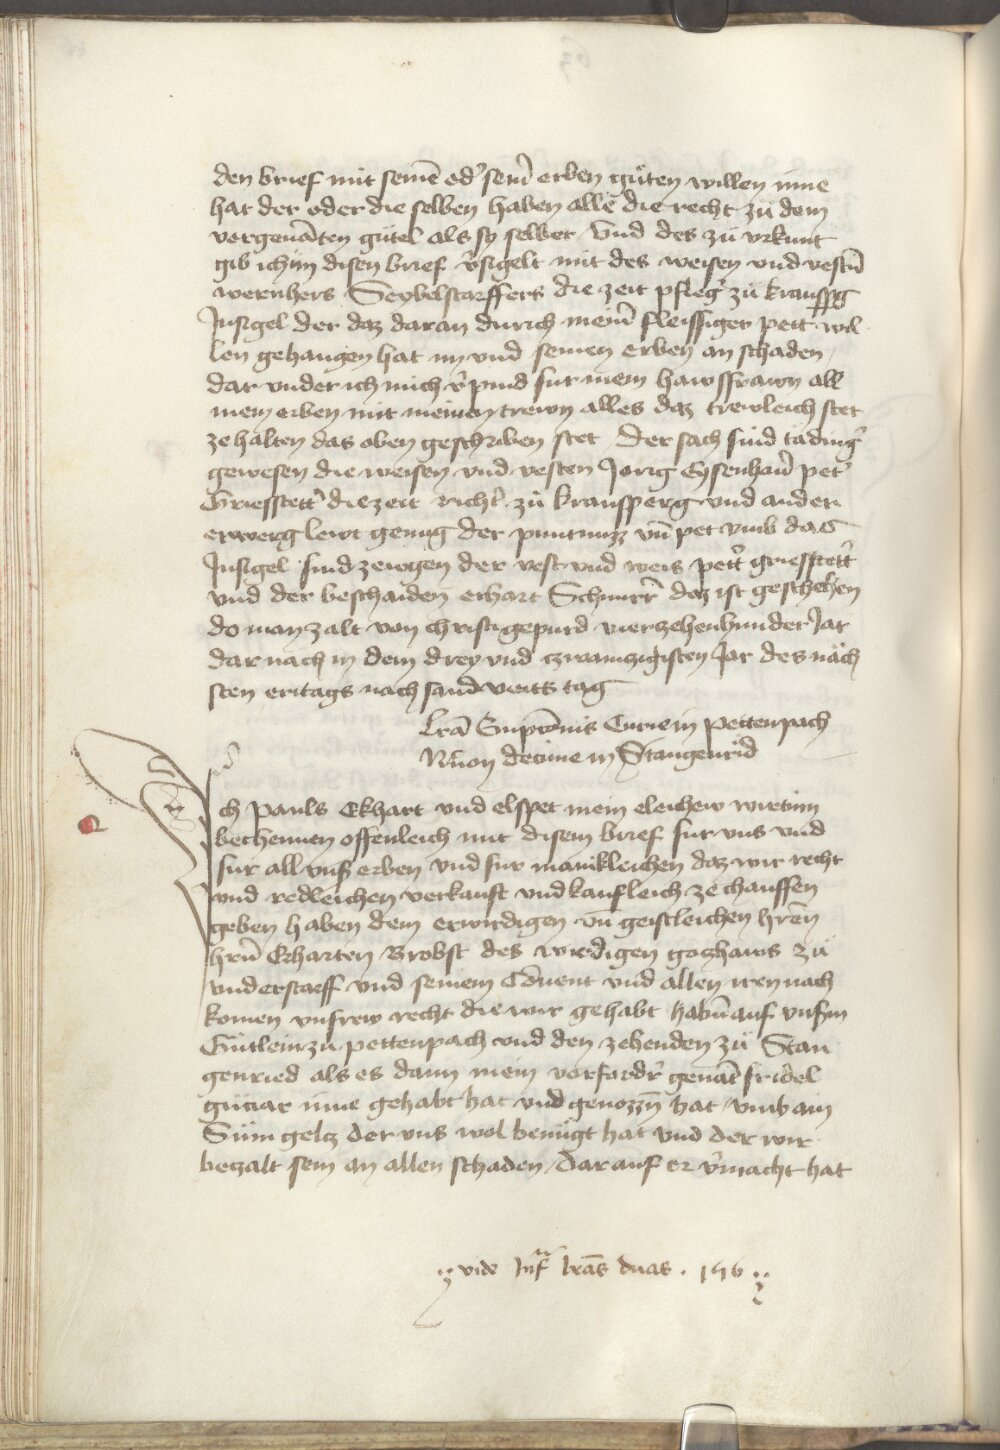 den brief mit seinē od' sein̄ erben gůten willen inne
hat der oder die selben haben alle die recht zů dem
vorgenāten gůtel als sy selber Vnd des zů vrkunt
gib ich im disen brief v'sigelt mit des weisen vnd vestn̄
wernhers Seybelstarffers die zeit pfleg' zů kranspg
Insigel der daz daran durich mein̄ fleissiger pett wil
len gehangen hat im vnd seinen erben an schaden
dar vnder ich mich v'pind fur mein hawsfrawn all
mein erben mit meinen trewn alles daz trewleich stet
ze halten das oben geschriben stet Der sach sind tading'
gewesen die weisen vnd vesten Jorig Eysenhau' pet'
Griesstett' die zeit richt' zů kransperg vnd ander
erwerg lewt genug der puntnuzz vn̄ pet vmb das
Insigel sind zewgen der vest vnd weis pett' griesstett'
vnd der beschaiden erhart Schmirr' daz ist geschehen
do man zalt von christi gepurd vierzehenhundert Jar
dar nach in dem drey vnd czwainzigisten Jar des näch
sten eritags nach sand veitts tag
Lrā Empcōnis Curie in Pettenpach
Nn̄on decime in Stangenrid
Ich Pauls Ekhart vnd elspet mein eleichew wirttinn
bechennen offenleich mit disem brief fur vns vnd
fur all vnß erben vnd fur manikleichen daz wir recht
vnd redleichen verkauft vnd kaufleich ze chauffen
geben haben dem erwirdigen vn̄ geistleichen hrēn
hrn̄ Erharten Brobst des wirdigen goczhaws zů
vnderstarff vnd seinem Cōuent vnd allen iren nach
komen vnsrew recht die wir gehabt habn̄ auf vnßm
Gůtlein zů pettenpach vnd den zehenden zů Stan
genried als es dann mein vorfordr' genāt fridel
inne gehabt hat vnd genozzn̄ hat vmb ain
Sum geltz der vns wol benůgt hat vnd der wir
betzalt sein an allen schaden / Dar auf er v'macht hat
vide Infra lrās duas . 156